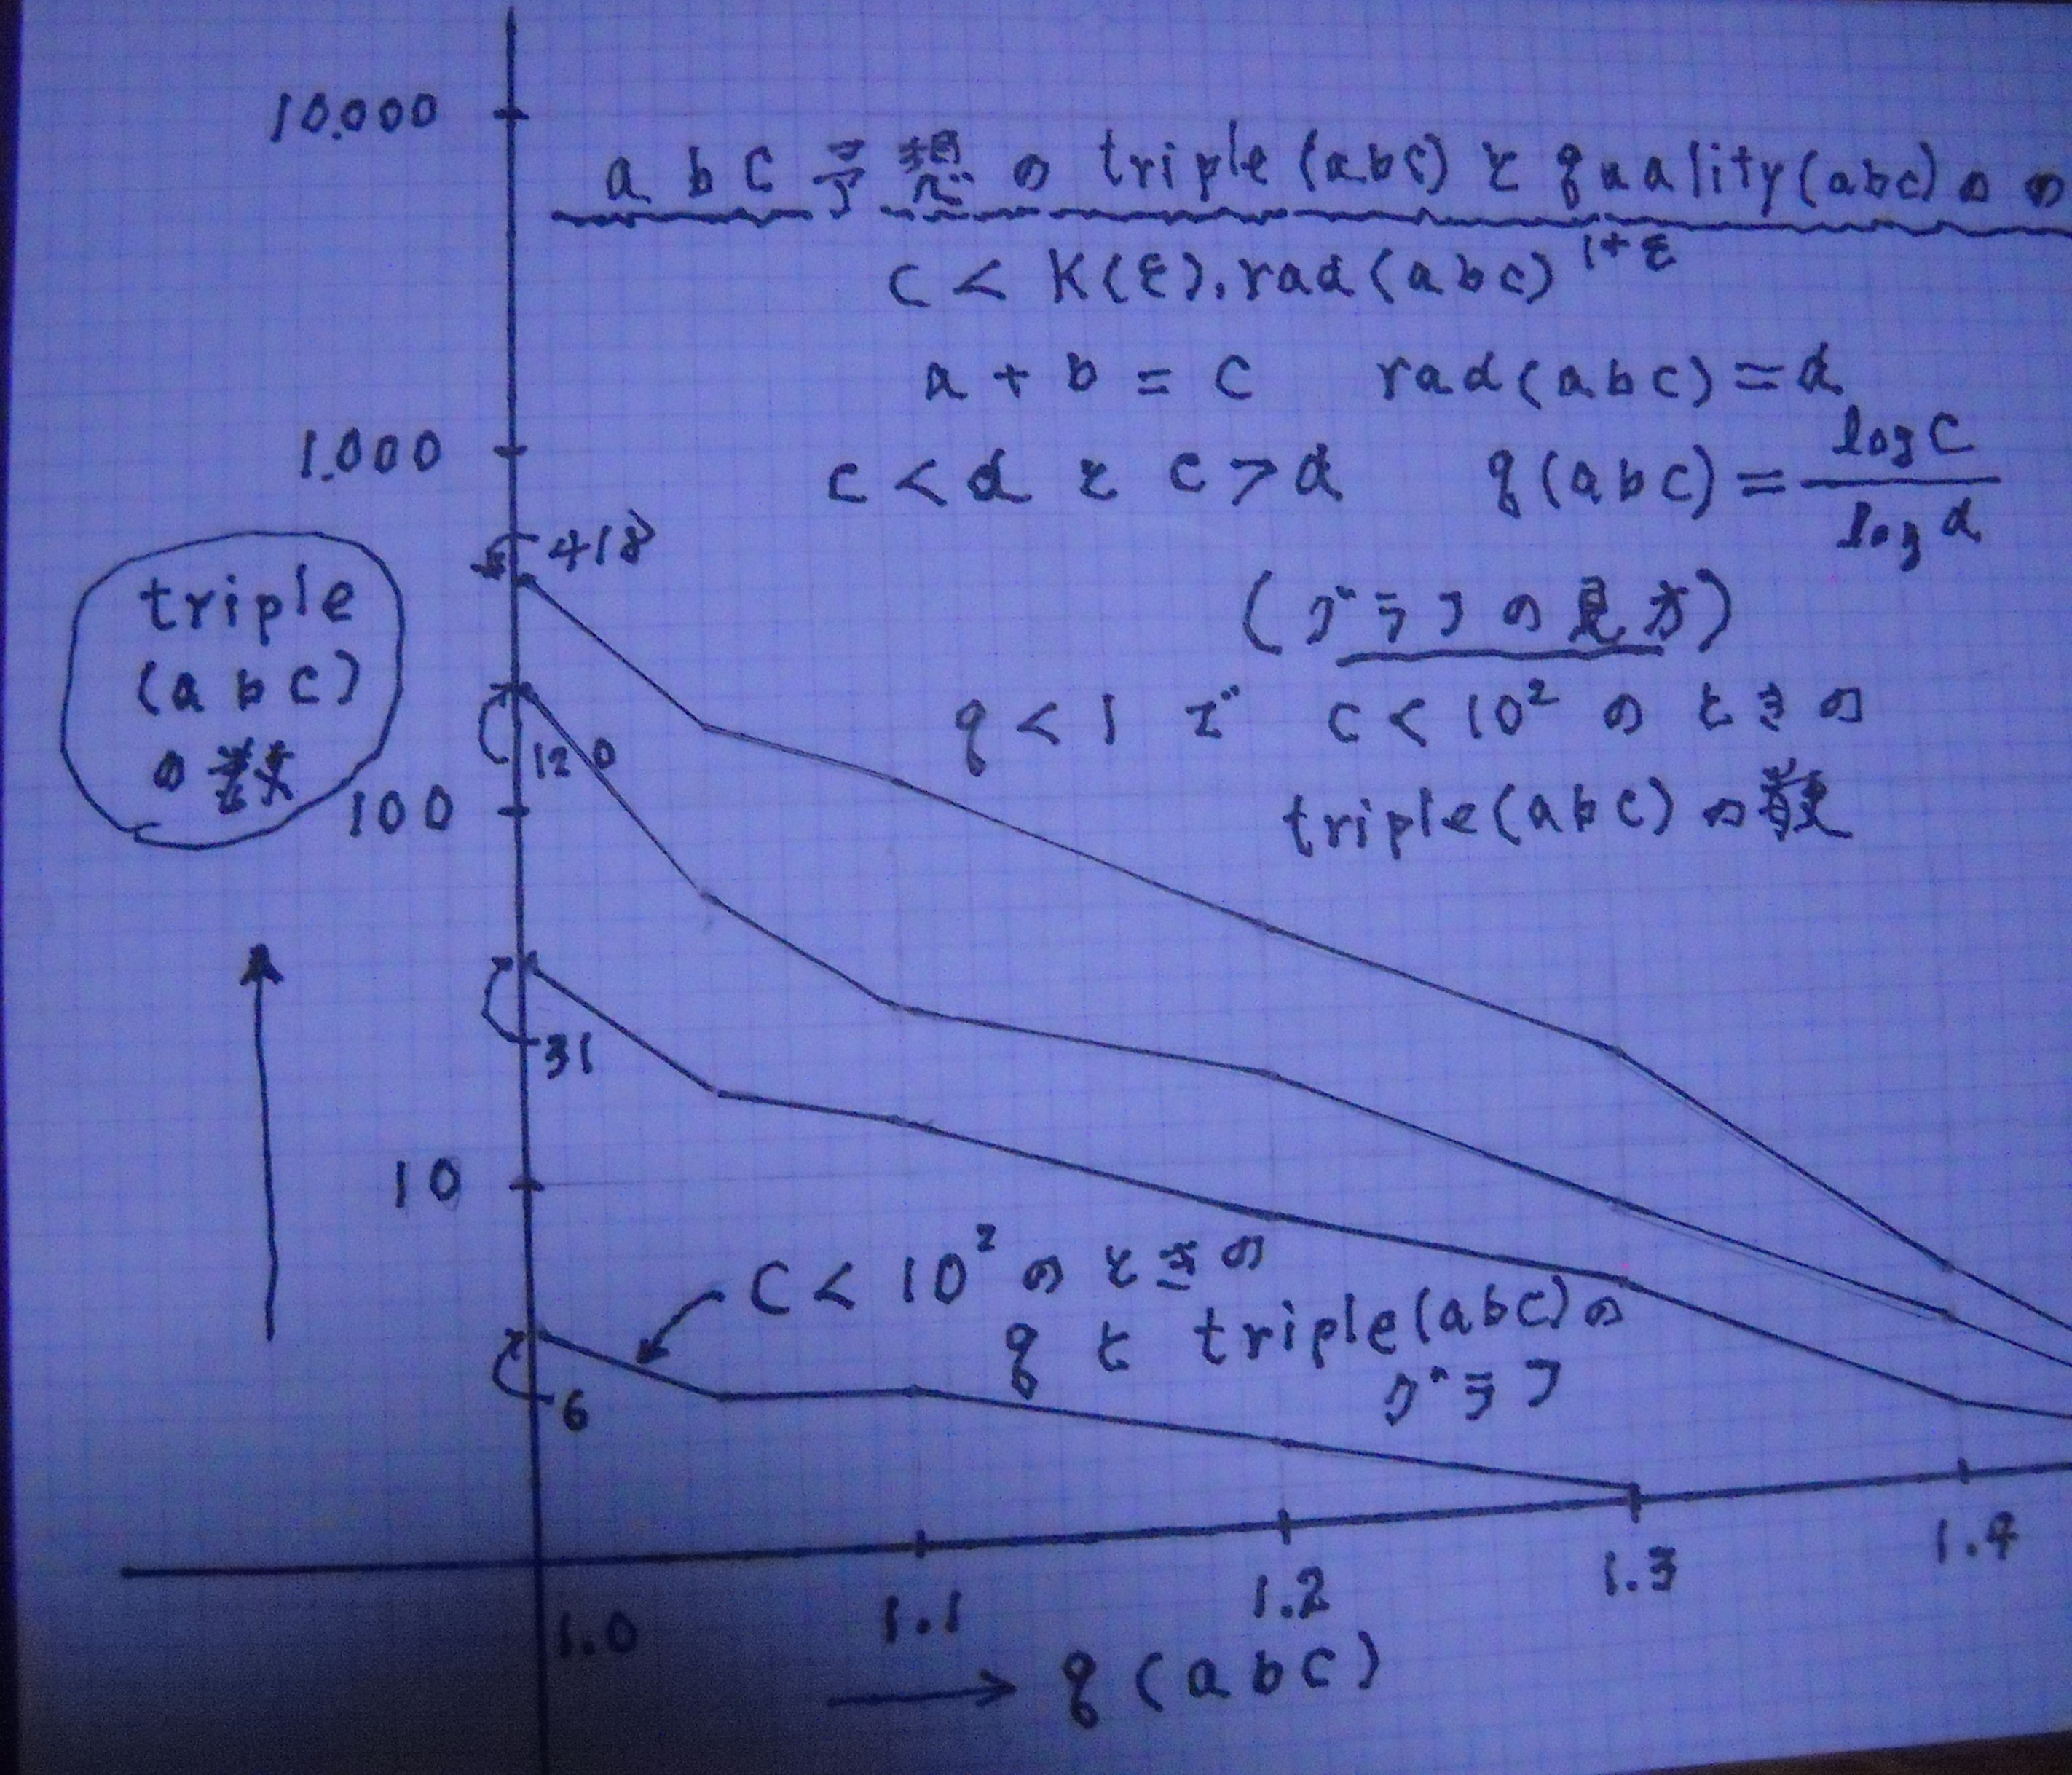 10.000
abc予想のtriple(abc)とquality(abc)の
c < K(ε).rad(abc)^1+ε
a + b = c rad(abc) = d
1.000
c < d と c > d q(abc) = log c / log d
418
(グラフの見方)
triple
(abc)
の数
q < 1 で c < 10² のときの
triple(abc)の数
120
100
31
10
c < 10² のときの
q と triple(abc)の
グラフ
6
1.0 1.1 1.2 1.3 1.4
→ q(abc)